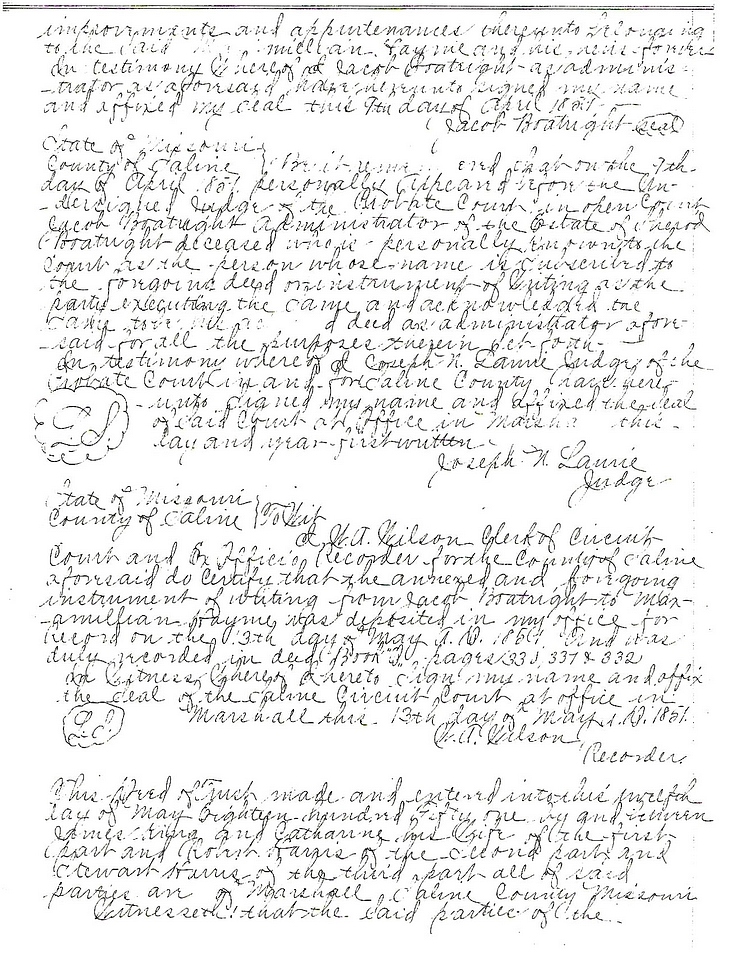 improvements and appurtenances thereunto belonging
to the said Maxamillian Hayme and his heirs forever
In testimony Whereof I Jacob Boatright as adminis-
-trator as aforesaid have hereunto signed my name
and affixed my seal this 7th day of April 1851
Jacob Boatright Seal
State of Missouri
County of Saline Be it remembered that on the 7th
day of April 1851 personally appeared before the Un-
-dersigned Judge of the Probate Court in open Court
Jacob Boatright administrator of the Estate of
Boatright deceased who is personally known to the
Court as the person whose name is subscribed to
the foregoing deed or instrument of Writing as the
party executing the same and acknowledged the
same to be his act and deed as administrator afore-
-said for all the purposes therein set forth
In testimony whereof I Joseph N. Laurie Judge of the
Probate Court in and for Saline County have here-
L.S. -unto signed my name and affixed the seal
of said Court at Office in Marshall this
day and year first written
Joseph N. Laurie
Judge
State of Missouri
County of Saline To Wit
I W.A. Wilson Clerk of Circuit
Court and Ex Officio Recorder for the County of Saline
aforesaid do Certify that the annexed and foregoing
instrument of writing from Jacob Boatright to Max-
-amillian Hayme was deposited in my office for
record on the 13th day of May A.D. 1851 And was
duly recorded in deed Book pages 331 & 332
In Witness Whereof I hereto sign my name and affix
the seal of the Saline Circuit Court at office in
L.S. Marshall this 13th day of May A.D. 1851
W.A. Wilson
Recorder
This Deed of Trust made and entered into this twelfth
day of May Eighteen hundred Fifty one by and between
James King and Catharine his Wife of the first
part and Robert Harris of the second part and
Stewart Harris of the third part all of said
parties are of Marshall Saline County Missouri
Witnesseth that the said parties of the